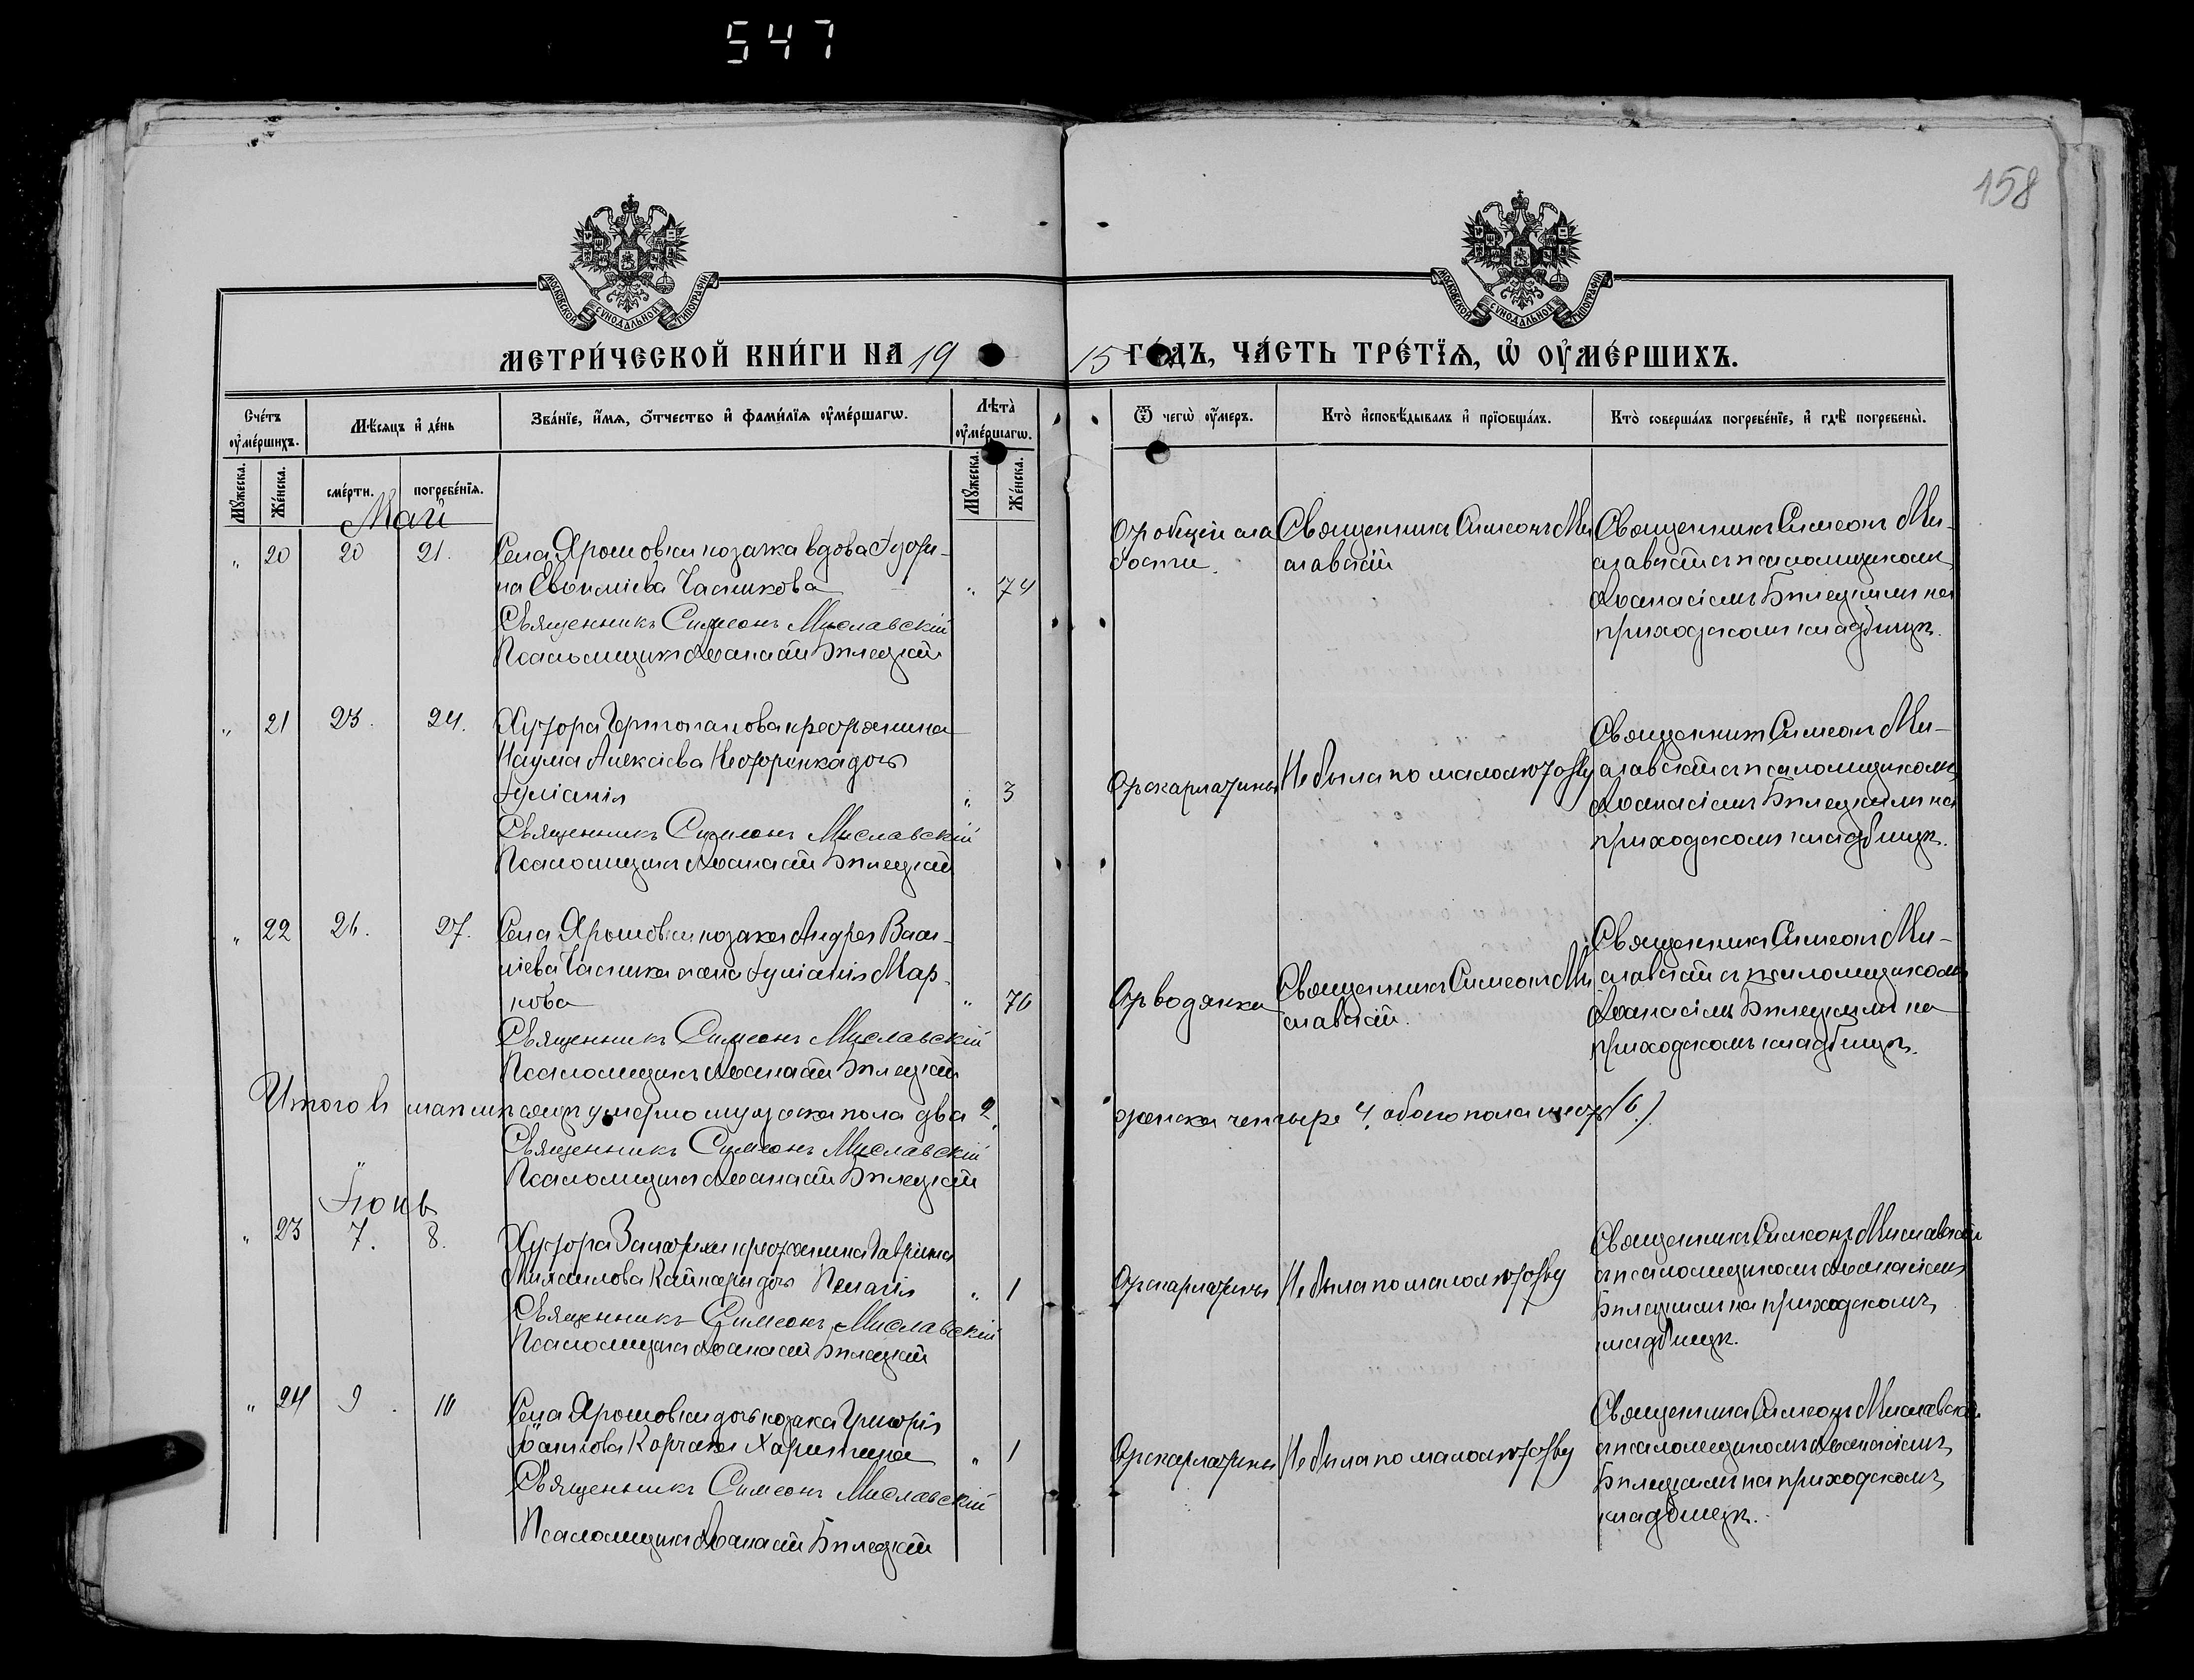 547
158
МОСКОВСКОЙ СУНОДАЛЬНОЙ ТИПОГРАФІИ
МОСКОВСКОЙ СУНОДАЛЬНОЙ ТИПОГРАФІИ
МЕТРИ́ЧЕСКОЙ КНИ́ГИ НА 19
15 ГО́ДЪ, ЧА́СТЬ ТРЕ́ТЇѦ, Ѡ҆ ОУ҆МЕ́РШИХЪ.
Сче́тъ оу҆ме́ршихъ.
Мѣ́сяцъ и҆ де́нь
Зва́нїе, и҆́мя, о҆́тчество и҆ фами́лїя оу҆ме́ршагѡ.
Лѣта̀ оу҆ме́ршагѡ.
Ѿ чегѡ̀ оу҆́меръ.
Кто̀ и҆сповѣ́дывалъ и҆ прїѡбща́лъ.
Кто̀ соверша́лъ погребе́нїе, и҆ гдѣ̀ погребены̀.
Мꙋ́жеска.
Же́нска.
сме́рти.
погребе́нїя.
Мꙋ́жеска.
Же́нска.
Май
„ 20 20 21. Села Ярошовки козачка вдова Іусти-
на Евѳиміева Часникова „ 74
Священникъ Симеонъ Миславскій
Псаломщикъ Аѳанасій Бѣлецкій
От общей сла
бости.
Священникъ Симеонъ Ми
славскій
Священникъ Симеон Ми-
славскій съ псаломщикомъ
Аѳанасіемъ Бѣлецкимъ на
приходскомъ кладбищѣ.
„ 21 23. 24. Хутора крестьянина
Наума Алексіева дочь
Іуліанія „ 3
Священникъ Симеонъ Миславскій
Псаломщикъ Аѳанасій Бѣлецкій
От скарлатины
Не была по малолѣтству
Священникъ Симеон Ми-
славскій съ псаломщикомъ
Аѳанасіемъ Бѣлецкимъ на
приходскомъ кладбищѣ.
„ 22 26. 27. Села Ярошовки козака Андрея Васи-
ліева Часника жена Іуліанія Мар-
кова „ 76
Священникъ Симеонъ Миславскій
Псаломщикъ Аѳанасій Бѣлецкій
От водянки
Священникъ Симеон Ми
славскій.
Священникъ Симеон Ми-
славскій съ псаломщикомъ
Аѳанасіемъ Бѣлецкимъ на
приходскомъ кладбищѣ.
Итого въ маѣ мѣсяцѣ умерло мужеска пола два 2,
женска четыре 4, обоего пола шесть (6.)
Священникъ Симеонъ Миславскій
Псаломщикъ Аѳанасій Бѣлецкій
Іюнь
„ 23 7. 8. Хутора крестьянина Гавріила
Михаилова дочь Пелагія „ 1
Священникъ Симеонъ Миславскій
Псаломщикъ Аѳанасій Бѣлецкій
От скарлатины
Не была по малолѣтству
Священникъ Симеонъ Миславскій
съ псаломщикомъ Аѳанасіемъ
Бѣлецкимъ на приходскомъ
кладбищѣ.
„ 24 9. 10 Села Ярошовки дочь козака Григорія
Харитина „ 1
Священникъ Симеонъ Миславскій
Псаломщикъ Аѳанасій Бѣлецкій
От скарлатины
Не была по малолѣтству
Священникъ Симеонъ Миславскій
съ псаломщикомъ Аѳанасіемъ
Бѣлецкимъ на приходскомъ
кладбищѣ.